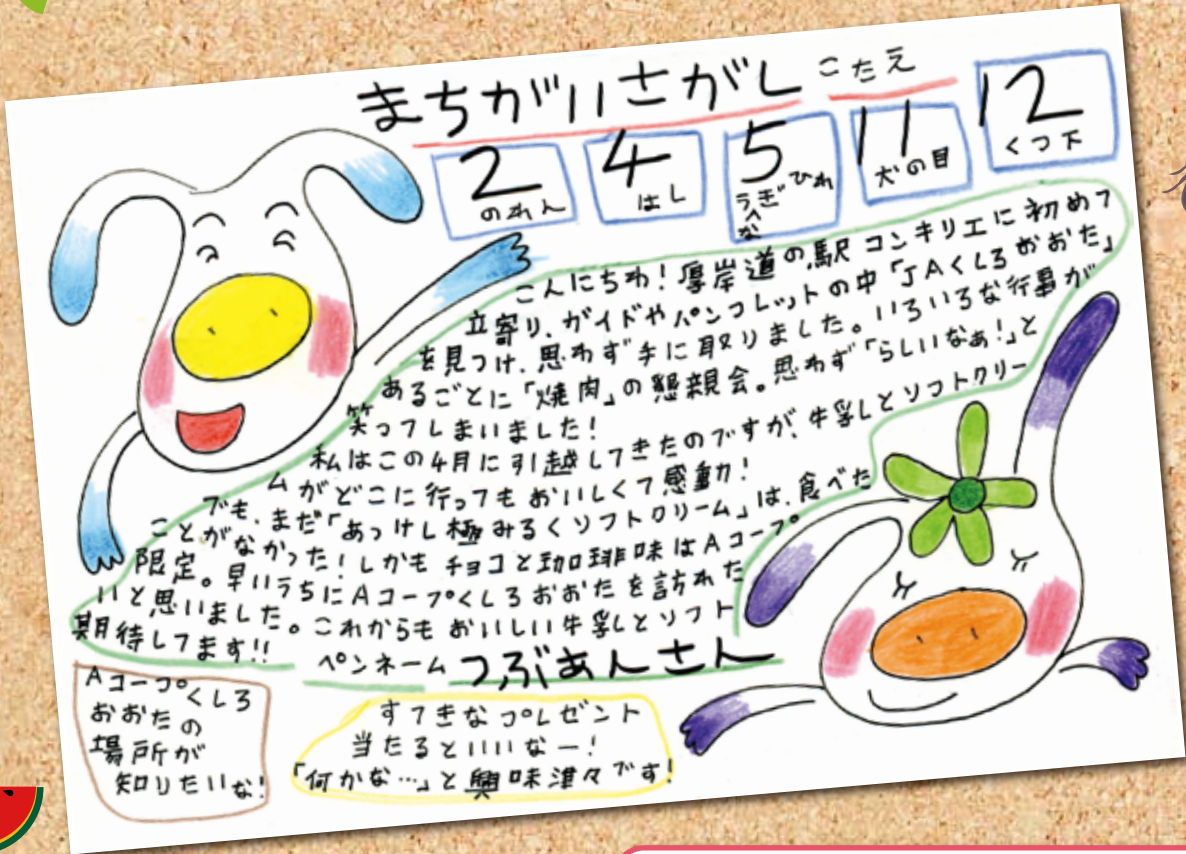 まちがいさがし こたえ
2 のれん
4 はし
5 うぎへな ひれ
11 犬の目
12 くつ下
こんにちわ!厚岸道の駅コンキリエに初めて
立寄り、ガイドやパンフレットの中「JAくしろおおた」
を見つけ、思わず手に取りました。いろいろな行事が
あるごとに「焼肉」の懇親会。思わず「らしいなぁ!」と
笑ってしまいました!
私はこの4月に引越してきたのですが、牛乳とソフトクリー
ムがどこに行ってもおいしくて感動!
でも、まだ「あっけし極みるくソフトクリーム」は、食べた
ことがなかった!しかもチョコと珈琲味はAコープ
限定。早いうちにAコープくしろおおたを訪れた
いと思いました。これからもおいしい牛乳とソフト
期待してます!!
ペンネーム つぶあんさん
Aコープくしろ
おおたの
場所が
知りたいな!
すてきなプレゼント
当たるといいなー!
「何かな…」と興味津々です!